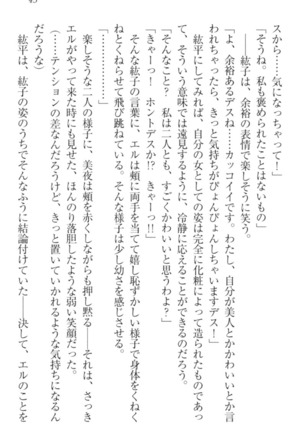 スから……気になっちゃって！」
「そうね。私も褒められたことはないもの」
――紘子は、余裕の表情で楽しそうに笑う。
「よ、余裕あるデスね――カッコイイです。わたし、自分が美人とかかわいいとか言
われちゃったら、きっと気持ちがぴょんぴょんしちゃいますデス！」
紘平にしてみれば、自分の女としての姿は完全に化粧によって造られたものであっ
て、そういう意味では遠見するように、冷静に応えることができるのだろう。
「そんなこと？　私は二人とも、すごくかわいいと思うわよ？」
「きゃーっ！　ホントデスか!?　きゃーっ!!」
そんな紘子の言葉に、エルは頬に両手を当てて嬉し恥ずかしい様子で身体をくねく
ねとくねらせて飛び跳ねている。そんな様子は少し幼さを感じさせる。
「…………」
楽しそうな二人の様子に、美夜は頬を赤くしながらも押し黙る――それは、さっき
エルがやって来た時にも見せた、ほんのり落胆したような弱い笑顔だった。
（――テンションの差なんだろうけど、きっと置いていかれるような気持ちになるん
だろうな）
紘平は、紘子の姿のうちでそんなふうに結論付けていた――決して、エルのことを